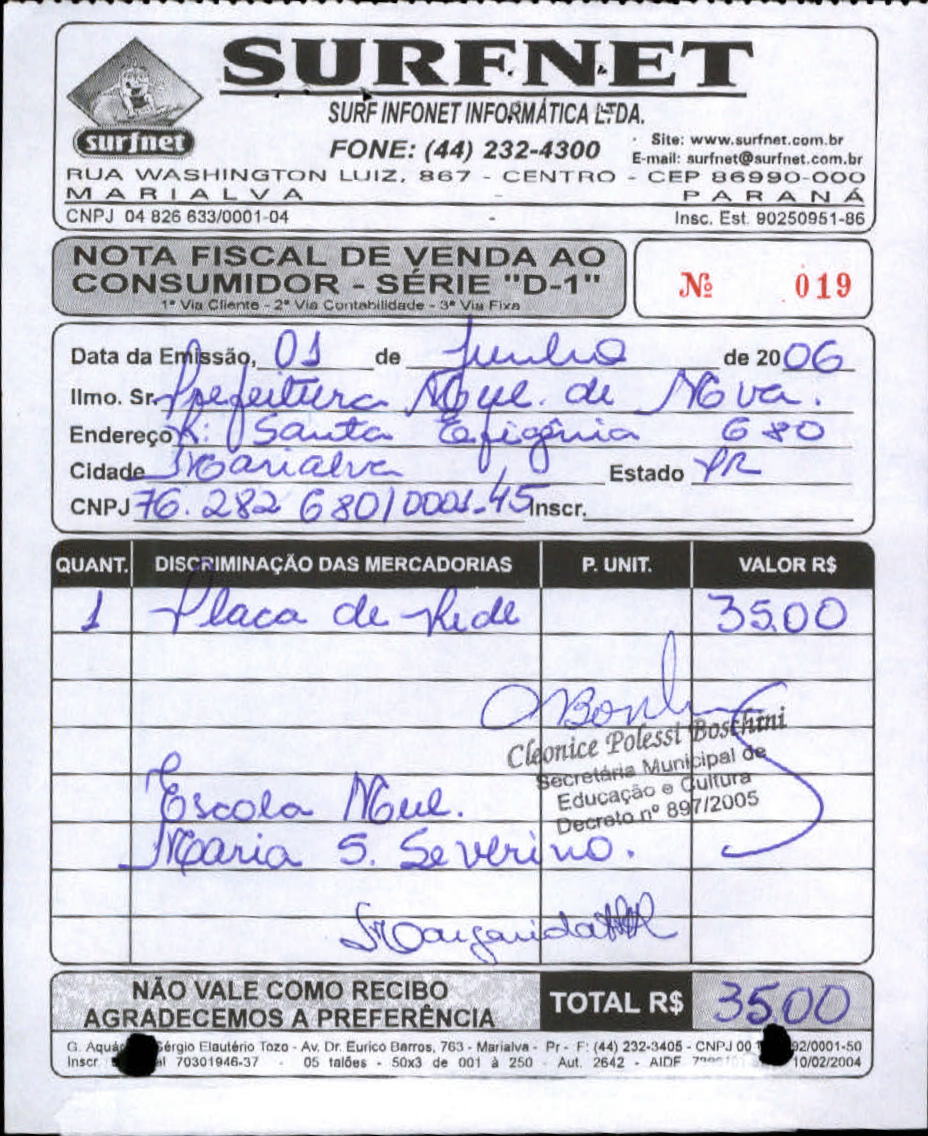 SURFNET
surfnet
SURF INFONET INFORMÁTICA LTDA.
FONE: (44) 232-4300
Site: www.surfnet.com.br
E-mail: surfnet@surfnet.com.br
RUA WASHINGTON LUIZ, 867 - CENTRO - CEP 86990-000
MARIALVA - PARANÁ
CNPJ 04 826 633/0001-04
Insc. Est. 90250951-86
NOTA FISCAL DE VENDA AO
CONSUMIDOR - SÉRIE "D-1"
1ª Via Cliente - 2ª Via Contabilidade - 3ª Via Fixa
Nº 019
Data da Emissão, 01 de Junho de 2006
Ilmo. Sr. Prefeitura Mul. de Mva.
Endereço R: Santa Efigênia 680
Cidade Marialva Estado PR
CNPJ 76.282 680/0001-45 Inscr.
QUANT. DISCRIMINAÇÃO DAS MERCADORIAS P. UNIT. VALOR R$
1 Placa de Rede 35,00
Cleonice Polessi Boschini
Secretária Municipal de
Educação e Cultura
Decreto nº 897/2005
Escola Mul.
Maria S. Severino.
Margarida
NÃO VALE COMO RECIBO
AGRADECEMOS A PREFERÊNCIA
TOTAL R$ 35,00
G. Sérgio Elautério Tozo - Av. Dr. Eurico Barros, 763 - Marialva - Pr - F: (44) 232-3405 - CNPJ 00 92/0001-50
Inscr. 70301946-37 - 05 talões - 50x3 de 001 à 250 - Aut. 2642 - AIDF 10/02/2004